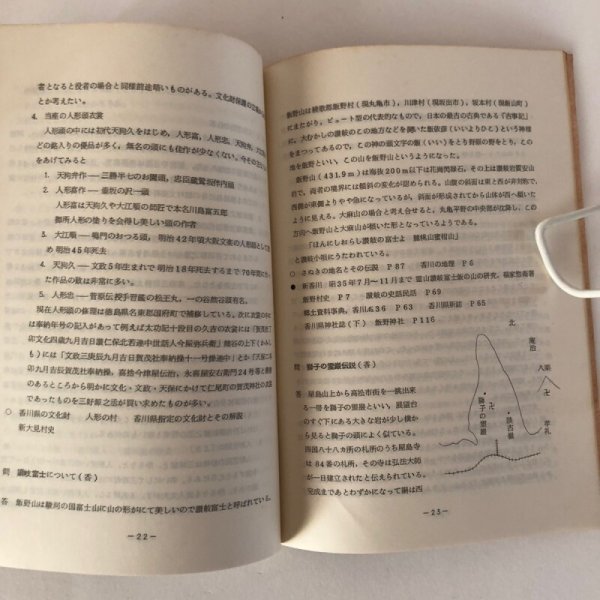 者となると役者の場合と同様前途暗いものがある。文化財保護の立場から
とか考えたい。
4. 当座の人形頭衣裳
人形頭の中には初代天狗久をはじめ、人形富、人形忠、天狗弁
どの銘入りの優品が多く、無名の頭にも佳作が少なくない。今その主な
をあげてみると
1. 天狗弁作 ― 三勝半七のお園頭、忠臣蔵鷺坂伴内頭
2. 人形富作 ― 重次の沢一頭
人形富は天狗久や大江順の師匠で本名川島富五郎
御所人形の塗りを会得し美しい頭の作者
3. 大江順 ― 鳴門のおつる頭。明治42年頃大阪文楽の人形頭として
め 明治45年死去
4. 天狗久 ― 文政5年生まれで 明治18年死去するまで70年間に
た作品の数は非常に多い。
5. 人形忠 ― 菅原伝授手習鑑の松王丸、一の谷熊谷頭有名。
現在人形頭の修理は徳島県名東郡国府町で補修している。次に衣裳には
は奉納年号の記入があって例えば太功記十段目の久吉の衣裳には
卯文化四歳九月吉日
も)には「文政三庚辰九月吉日賀茂社奉納
卯九月吉日賀茂社奉納、喜捨今津屋伝治、永喜屋安右衛門24号等と
のあるところから明かに文化・文政・天保にかけて仁尾町の賀茂神社の
あったものを三野郷之が買い求めたものが多い。
○ 香川県の文化財 人形の村 香川県指定の文化財とその解説
新大見村史
問 讃岐富士について(香)
答 飯野山は駿河の国富士山に山の形がにて美しいので讃岐富士と呼ばれている。
―22―
飯野山は綾歌郡飯野村(現丸亀市)、川津村(現坂出市)、坂本村(現飯山町)
にまたがり、ビュート型の代表的なもので、日本の最古の古典である「古事記」
に、大むかしの讃岐のこの地方などを開いた飯依彦(いいよりひこ)という神様
をまつってあるので、この神の頭文字の飯(いい)をとり野原の野をとり、この
地を飯野といい、この山を飯野山というようになった。
飯野山(431.9m)は海抜200m以下は花崗閃緑石。その上は讃岐岩質安山
岩で、両者の境界には傾斜の変化が認められる。山腹の斜面は東と西が非対称で、
西側が東側よりやや急になっているが、斜面が形成されてから山体が西へ傾いた
ように見える。大麻山の場合と考え合せると、丸亀平野の中央部が沈降し、この
方向へ飯野山と大麻山が傾いた形となっているようである。
「ほんにしおらし讃岐の富士よ 饅桃山蜜柑山」
と小唄にもうたわれている。
○ さぬきの地名とその伝説 P87 香川の地理 P6
● 新香川 昭35年7月~11月まで 霊山讃岐富士飯の山の研究、福家惣衛著
飯野村史 P7 讃岐の史話民話 P69
郷土資料事典、香川県36 P63 香川県新誌 P65
香川県神社誌(下) 飯野神社 P116
問 獅子の霊巌伝説(香)
答 屋島山上から高松市街を一眺出来
る一帯を獅子の霊巌といい、展望台
のすぐ下にある大きな岩が少し横か
ら見ると獅子の頭によく似ている。
四国八十八カ所の札所のうち屋島寺
は84番の札所、その寺は弘法大師
が一日建立されたと伝えられている。
完成まであとわずかになって陽は西
北
庵治
八栗
卍
牟礼
卍
獅子の霊巌
談古嶺
―23―